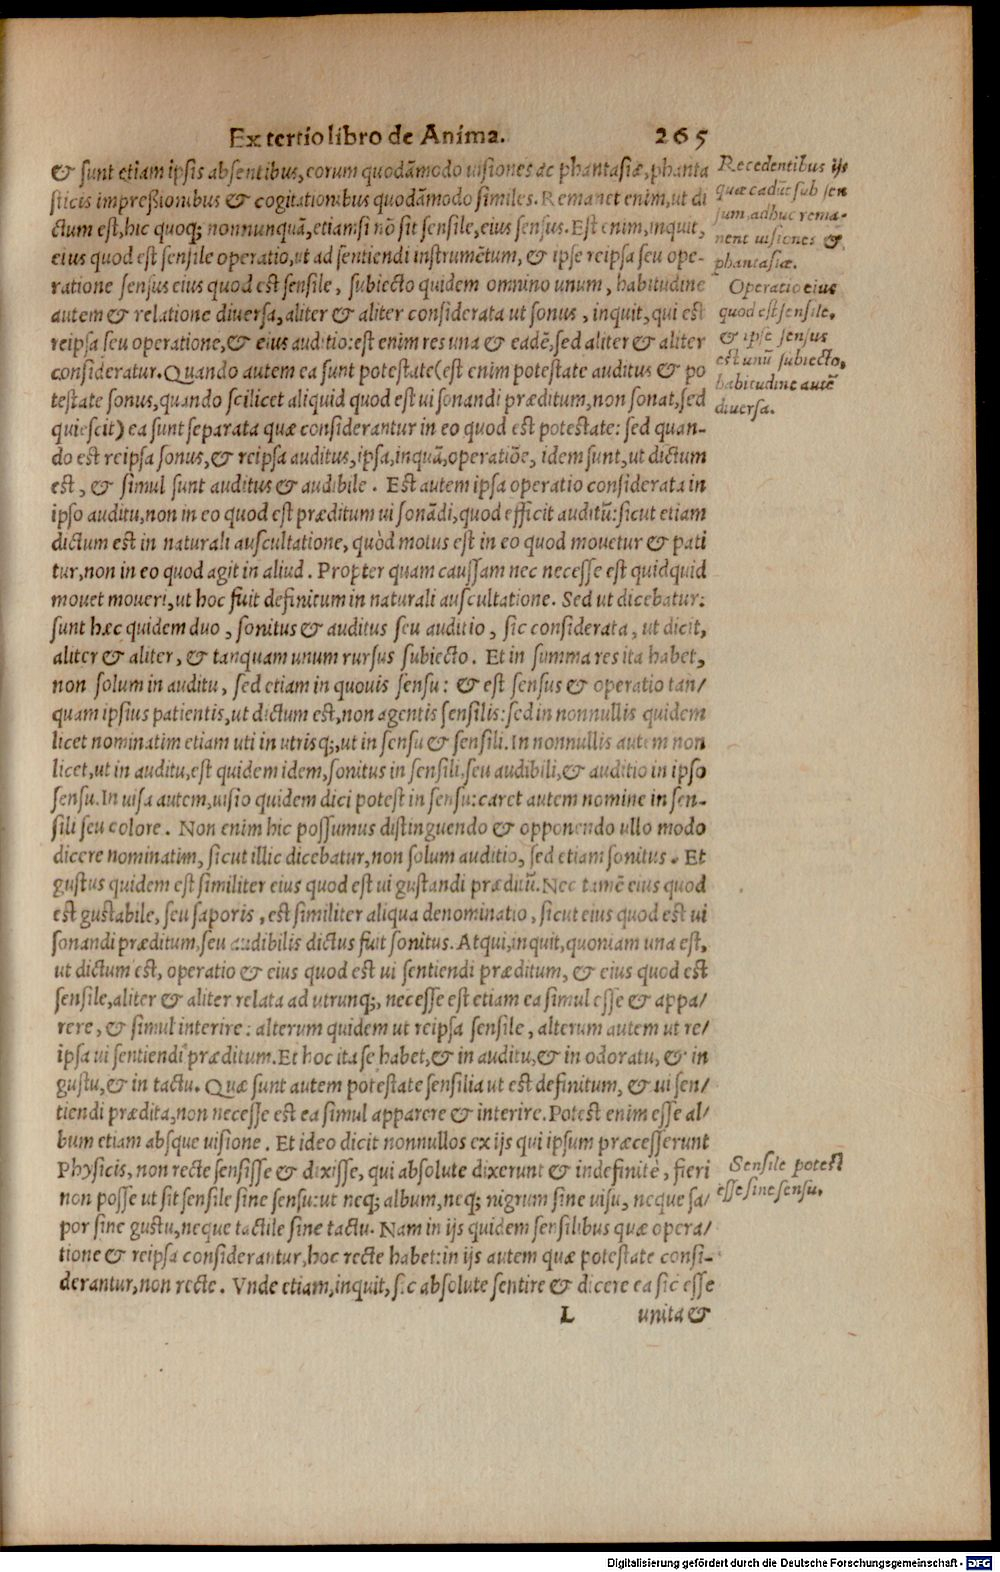 Ex tertio libro de Anima. 265
& sunt etiam ipsis absentibus, eorum quodãmodo uisiones ac phantasiæ, phanta
sticis impreßionibus & cogitationibus quodãmodo similes. Remanet enim, ut di
ctum est, hic quoq; nonnunquã, etiamsi nõ sit sensile, eius sensus. Est enim, inquit,
eius quod est sensile operatio, ut ad sentiendi instrumẽtum, & ipse reipsa seu ope-
ratione sensus eius quod est sensile, subiecto quidem omnino unum, habitudine
autem & relatione diuersa, aliter & aliter considerata ut sonus, inquit, qui est
reipsa seu operatione, & eius auditio: est enim res una & eadẽ, sed aliter & aliter
consideratur. Quando autem ea sunt potestate (est enim potestate auditus & po
testate sonus, quando scilicet aliquid quod est ui sonandi præditum, non sonat, sed
quiescit) ea sunt separata quæ considerantur in eo quod est potestate: sed quan-
do est reipsa sonus, & reipsa auditus, ipsa, inquã, operatiõe, idem sunt, ut dictum
est, & simul sunt auditus & audibile. Est autem ipsa operatio considerata in
ipso auditu, non in eo quod est præditum ui sonãdi, quod efficit auditũ: sicut etiam
dictum est in naturali auscultatione, quòd motus est in eo quod mouetur & pati
tur, non in eo quod agit in aliud. Propter quam caussam nec necesse est quidquid
mouet moueri, ut hoc fuit definitum in naturali auscultatione. Sed ut dicebatur:
sunt hæc quidem duo, sonitus & auditus seu auditio, sic considerata, ut dicit,
aliter & aliter, & tanquam unum rursus subiecto. Et in summa res ita habet,
non solum in auditu, sed etiam in quouis sensu: & est sensus & operatio tan/
quam ipsius patientis, ut dictum est, non agentis sensilis: sed in nonnullis quidem
licet nominatim etiam uti in utrisq;, ut in sensu & sensili. In nonnullis autem non
licet, ut in auditu, est quidem idem, sonitus in sensili, seu audibili, & auditio in ipso
sensu. In uisa autem, uisio quidem dici potest in sensu: caret autem nomine in sen-
sili seu colore. Non enim hic possumus distinguendo & opponendo ullo modo
dicere nominatim, sicut illic dicebatur, non solum auditio, sed etiam sonitus. Et
gustus quidem est similiter eius quod est ui gustandi præditũ. Nec tamẽ eius quod
est gustabile, seu saporis, est similiter aliqua denominatio, sicut eius quod est ui
sonandi præditum, seu audibilis dictus fuit sonitus. Atqui, inquit, quoniam una est,
ut dictum est, operatio & eius quod est ui sentiendi præditum, & eius quod est
sensile, aliter & aliter relata ad utrunq;, necesse est etiam ea simul esse & appa/
rere, & simul interire: alterum quidem ut reipsa sensile, alterum autem ut re/
ipsa ui sentiendi præditum. Et hoc ita se habet, & in auditu, & in odoratu, & in
gustu, & in tactu. Quæ sunt autem potestate sensilia ut est definitum, & ui sen/
tiendi prædita, non necesse est ea simul apparere & interire. Potest enim esse al/
bum etiam absque uisione. Et ideo dicit nonnullos ex ijs qui ipsum præcesserunt
Physicis, non recte sensisse & dixisse, qui absolute dixerunt & indefinitè, fieri
non posse ut sit sensile sine sensu: ut neq; album, neq; nigrum sine uisu, neque sa/
por sine gustu, neque tactile sine tactu. Nam in ijs quidem sensilibus quæ opera/
tione & reipsa considerantur, hoc recte habet: in ijs autem quæ potestate consi-
derantur, non recte. Vnde etiam, inquit, sic absolute sentire & dicere ea sic esse
L unita &
Recedentibus ijs
quæ cadũt sub sen
sum, adhuc rema-
nent uisiones &
phantasiæ.
Operatio eius
quod est sensile,
& ipse sensus
est unũ subiecto,
habitudine autẽ
diuersa.
Sensile potest
esse sine sensu.
Digitalisierung gefördert durch die Deutsche Forschungsgemeinschaft - DFG